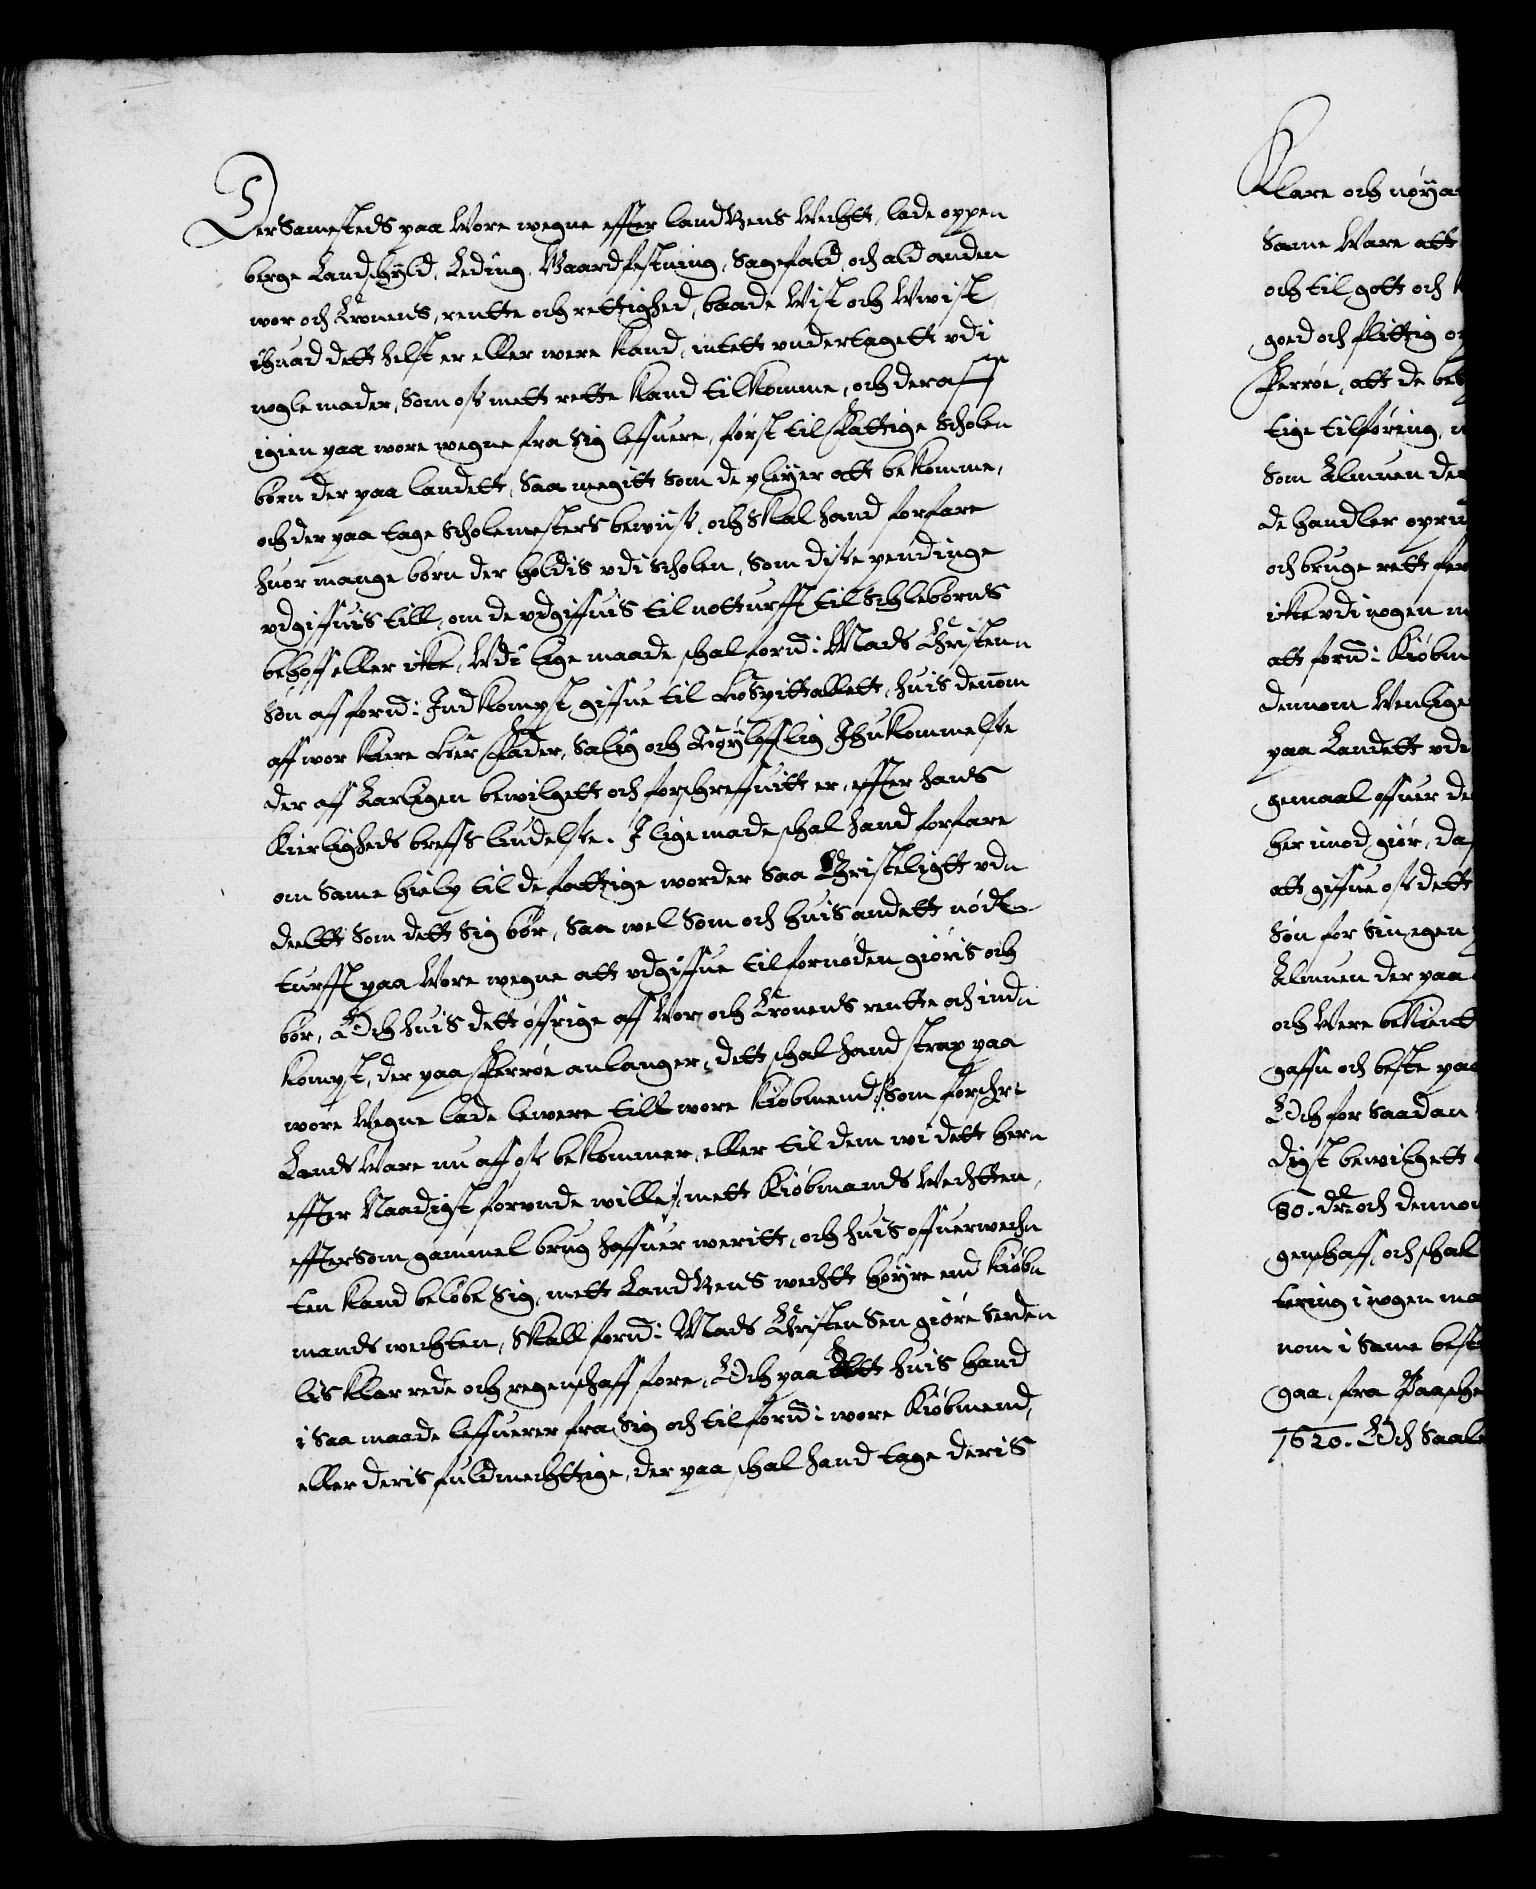 Der Samesteds paa Wore wegne effter landZens Wechtt, lade oppen
berge Landschyld, Leding, Waardfestning, Sagefald, och ald anden
wor och Cronens, rentte och rettighed, baade Wist och Wwist,
ihuad dett helst er eller were kand, intett vndertagett vdi
nogle mader, Som oss mett rette kand tilkomme, och deraff
igien paa wore wegne fra sig leffuere, først til fattige Scholen
børn der paa landett, Saa megitt Som de pleyer att bekomme,
och der paa tage Scholemesters bewiss, och Skal hand forfare
huor mange børn der holdis vdi Scholen, Som disse pendinge
vdgiffuis till, om de vdgiffuis til notturfft til Scholebørns
behoff eller icke, Vdi lige maade schal fornd: Mads Christenn
Søn aff fornd: Indkompst giffue til Hospittallett, huis dennom
aff wor kiere Her Fader, Salig och Høyloffllig Ihukommelse
der aff Aarligen bewilgett och forschreffuitt er, effter hans
Kierligheds breffs liudelse. I lige made schal hand forfare
om Same hielp til de fattige worder Saa Christeligtt vdn
deeltt Som dett sig bør, Saa wel Som och huis andett nødt
turfft paa Wore wegne att vdgiffue til fornøden giøris och
bør, Och huis dett øffrige aff Wor och Cronens rentte och indn
kompst, der paa Færrøe anlanger, dett schal hand strax paa
wore Wegne lade lewere till wore Kiøbmend, Som forschr:
Lands Ware nu aff oss bekommer, eller til dem wi dett hern
effter Naadigst forunde wille, mett Kiøbmands Wechtten,
effter som gammel brug haffuer weritt, och huis offuerwechn
ten kand beløbe sig, mett LandZens wechtt høyre end Kiøbn
mands wechten, Skall fornd: Mads Christensen giøre Serden
lis klar rede och regenschaff fore, Och paa Altt huis hand
i saa maade leffuerer fra sig och til fornd: wore Kiøbmend,
eller deris fuldmechttige, der paa schal hand tage deris
Klare och nøya
Same Ware att
och til gott och
goed och flittig
Færrøe, att de
tige tilføring,
Som Almuen
de handler
och bruge rett
icke vdi nogen
att fornd: Kiøbm
dennom Wenlige
paa Landett vdi
gemaal offuer
her imod giør,
att giffue oss dett
Søn for Sin egen
Almuen der paa
och Were bekient
gaffn och beste paa
Och for Saadan
digst bewilgett
80. dr. och dennom
genschaff, och schal
tering i nogen
nom i Same
gaa, fra Paasche
1620. Och Saale